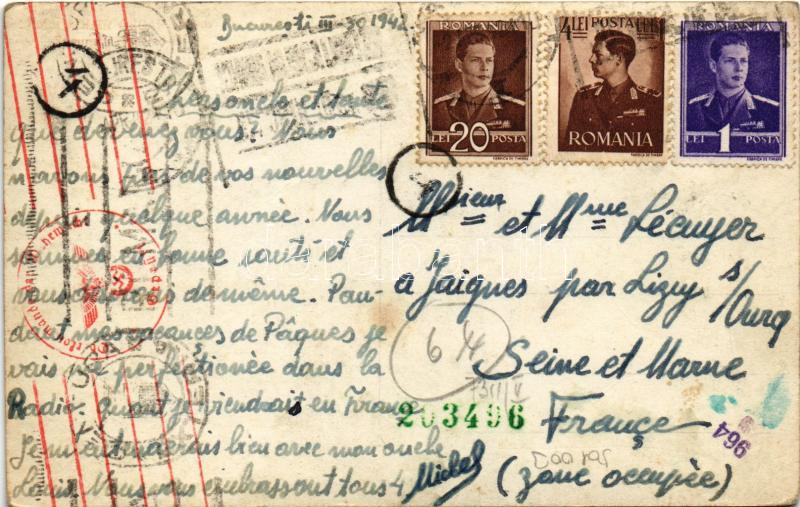 Bucuresti III-30 1942
personele et toute
que devenez vous? Nous
n'avons de vos nouvelles
depuis quelque année. Nous
sommes en bonne santé et
vous de même. Pen-
dant mes vacances de Pâques je
vais me perfectionée dans la
Radio. quant je viendrait en France
Je m'entenderais bien avec mon oncle
Louis. Nous vous embrassont tous 4
Michel
ROMANIA
LEI 20 POSTA
4 LEI POSTA LEI
ROMANIA
ROMANIA
LEI 1 POSTA
Msieur et Mme Lécuyer
à Jaignes par Lizy s/
Ourq
Seine et Marne
France
(zone occupée)
4
64
203496
964